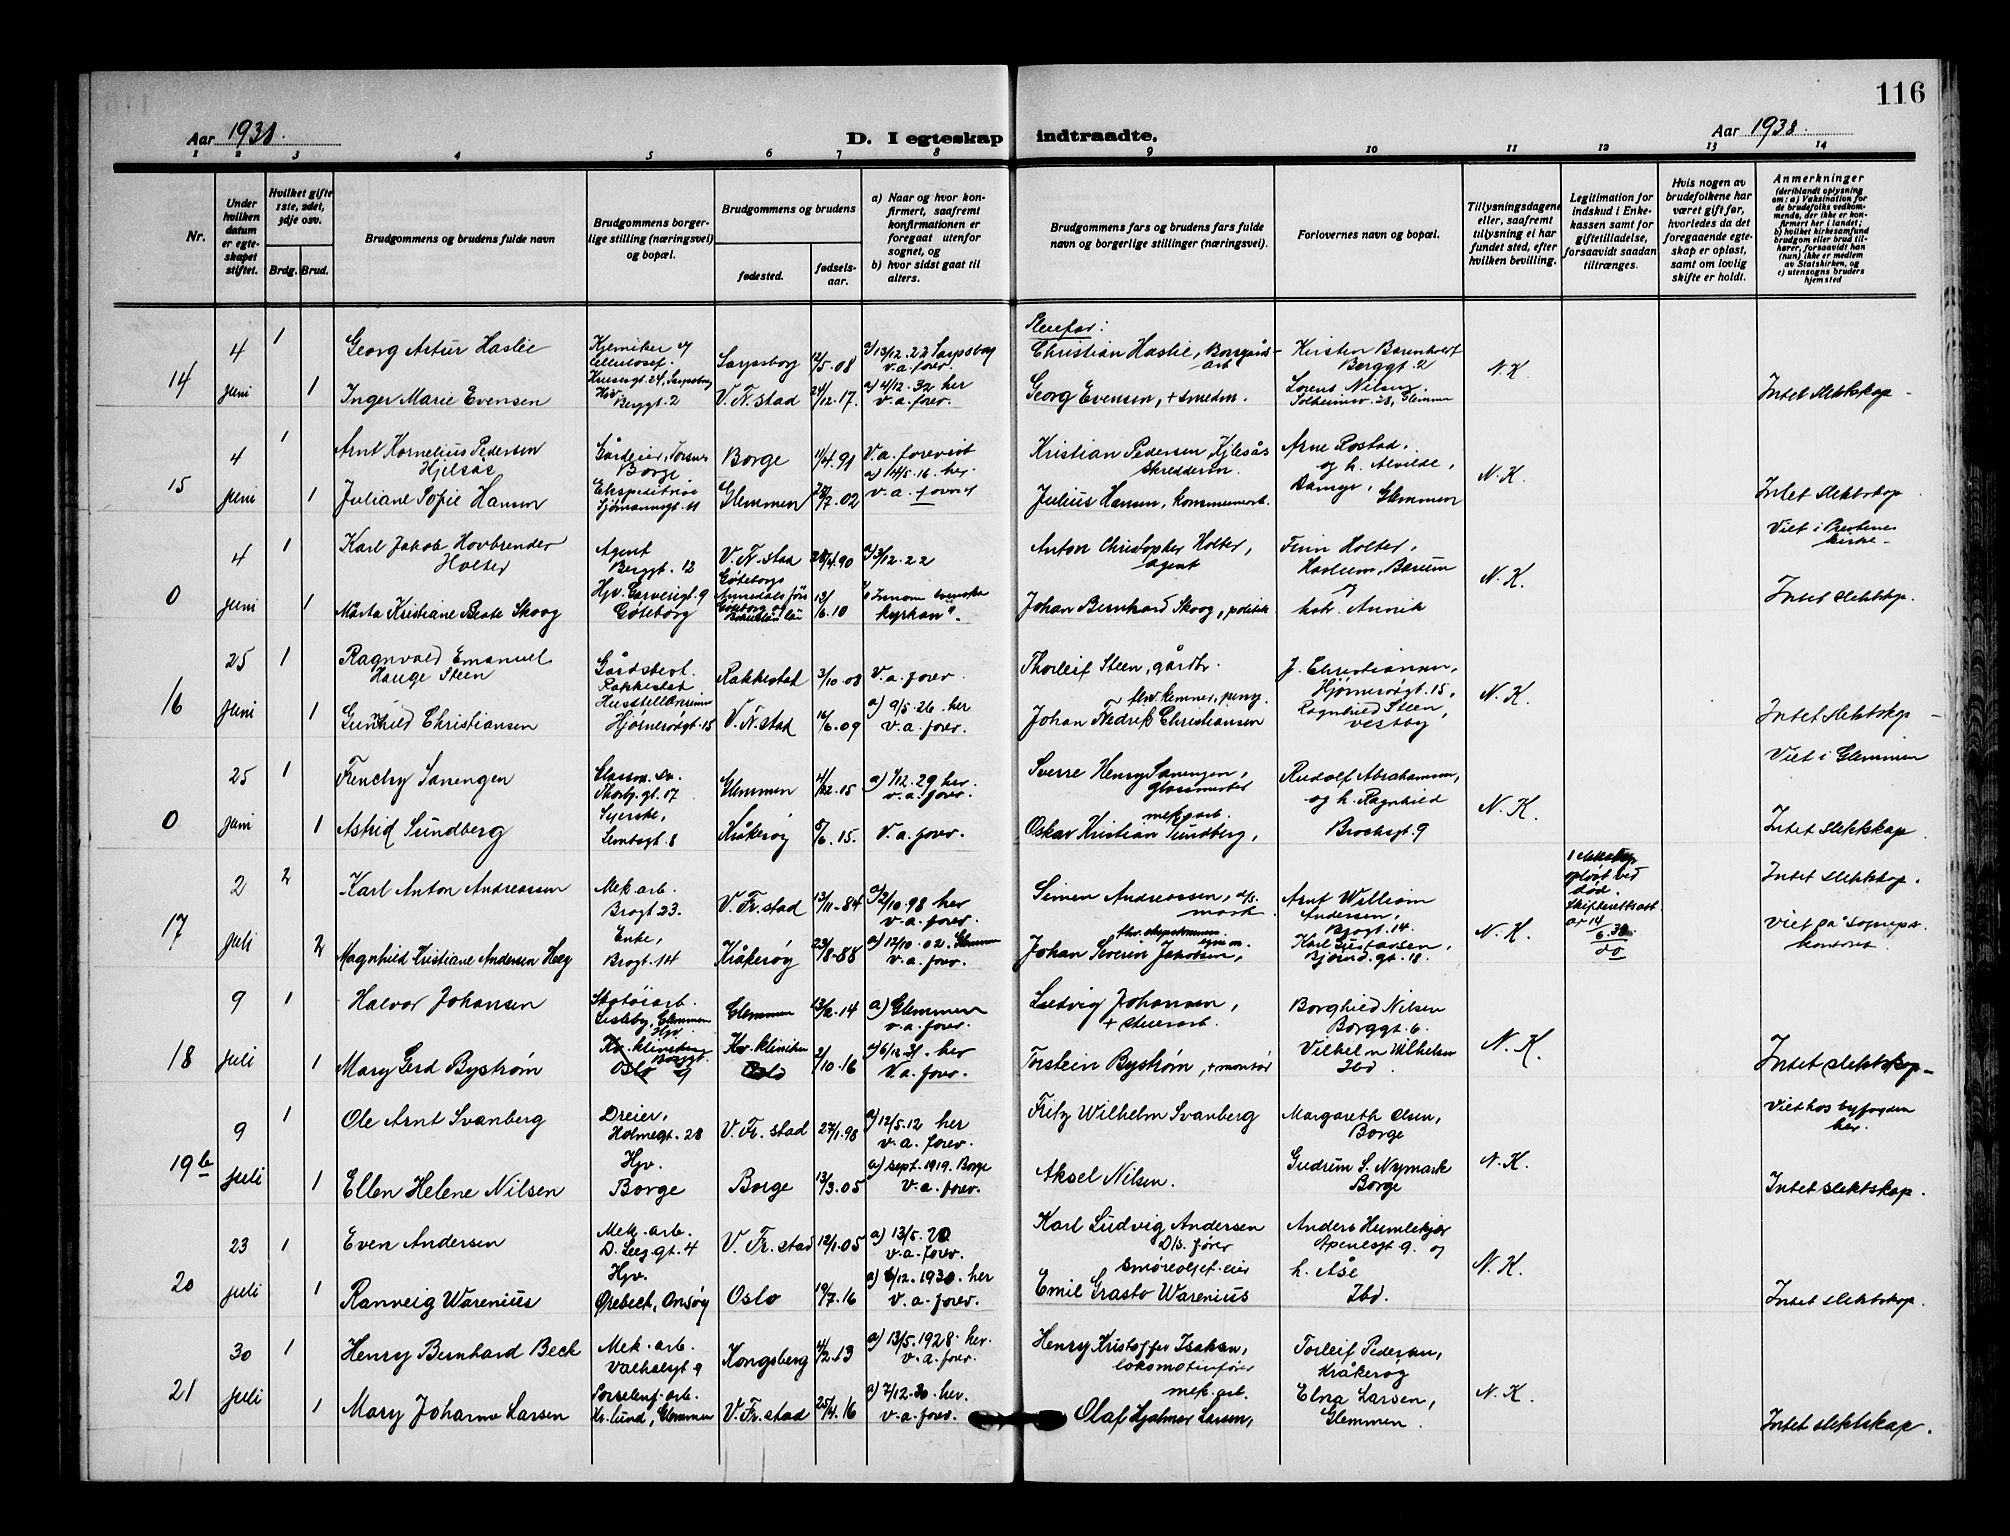 116
Aar 1938.
D. I egteskap indtraadte.
Aar 1938.
1 2 3 4 5 6 7 8 9 10 11 12 13 14
Nr.
Under hvilken datum er egteskapet stiftet.
Hvilket gifte 1ste, 2det, 3dje osv.
Brdg. Brud.
Brudgommens og brudens fulde navn
Brudgommens borgerlige stilling (næringsvei) og bopæl.
Brudgommens og brudens
fødested.
fødselsaar.
a) Naar og hvor konfirmert, saafremt konfirmationen er foregaat utenfor sognet, og
b) hvor sidst gaat til alters.
Brudgommens fars og brudens fars fulde navn og borgerlige stillinger (næringsvei).
Forlovernes navn og bopæl.
Tillysningsdagene eller, saafremt tillysning ei har fundet sted, efter hvilken bevilling.
Legitimation for indskud i Enkekassen samt for giftetilladelse, forsaavidt saadan tiltrænges.
Hvis nogen av brudefolkene har været gift før, hvorledes da det foregaaende egteskap er opløst, samt om lovlig skifte er holdt.
Anmerkninger
(deriblandt oplysning om: a) Vaksination for de brudefolks vedkommende, der ikke er konfirmert her i landet;
b) hvilket kirkesamfund brudgom eller brud tilhører, forsaavidt han (hun) ikke er medlem av Statskirken, og
c) utensogns bruders hjemsted
14
4 juni
1
Georg Artur Haslie
Kjemiker
Sarpsborg
12/5-08
a) 13/12-22 Sarpsborg
v.a. forev.
Pleiefar:
Christian Haslie, Borgaards-
arb.
Kirsten Barenholdt
Berggt. 2
N.K.
1
Inger Marie Evensen
Hjv.
Berggt. 2
V. Fr. stad
24/12-17.
a) 4/12-32 her
v.a. forev.
Georg Evensen, + smedm.
Lorens Nilsen,
28, Glemmen
Intet slektskap
15
4 juni
1
Arnt Kornelius Pedersen
Hjelsås
Gårdeier, Torsnes
Borge
Borge
11/4.91
V.a. forevist
Kristian Pedersen Hjelsås
skredderm.
Arne Rostad,
og h. Alvilde,
N.K.
1
Juliane Sofie Hansen
Ekspeditrise
Sjømannsgt. 11
Glemmen
02
a) 14/5-16. her
v.a. forev
Julius Hansen, kommunearb.
Glemmen
Intet slektskap
0
4 juni
1
Karl Jakob Hovbrender
Holter
Agent
Berggt. 12
V. Fr. stad
28/4.90
a) 3/12-22
Anton Christopher Holter,
agent
Finn Holter,
Haslum, Bærum
N.K.
Viet i Prestenes
kirke
1
Märta Kristiane Beate Skoog
Göteborg
Göteborgs
Annedals förs
Göteborg og
Bohuslän län
13/6.10
Innom svenska
kyrkan".
Johan Bernhard Skoog, politik
Annik
Intet slektskap.
16
25 juni
1
Ragnvald Emanuel
Hauge Steen
Gårdsbest.
Rakkestad
Rakkestad
3/10-08
V.a. forev.
Thorleif Steen, gårdbr.
J. Christiansen,
Hjørnerøgt. 15,
N.K.
1
Gunhild Christiansen
Hjørnerøgt. 15
V. Fr. stad
16/6.09
a) 9/5-26. her
v.a. forev.
Johan Fredrik Christiansen
Ragnhild Steen,
Vestby
Intet slektskap
0
25 juni
1
Frenchy Sanengen
Glassm. sv.
Thorbj. gt. 17
Glemmen
4/12-15
a) 1/12-29 her
v.a. forev.
Sverre Henry Sanengen,
glassmester
Rudolf Abrahamsen,
og h. Ragnhild
Brochsgt. 9
N.K.
Viet i Glemmen
1
Astrid Sundberg
Syerske,
Lembsgt. 8
Kråkerøy
5/6.15.
V.a. forev.
mek. arb.
Oskar Kristian Sundberg,
Intet slektskap.
17
2 juli
2
Karl Anton Andreassen
Mek. arb.
Brogt. 23.
V. Fr. stad
13/11-84
a) 2/10-98 her
v.a. forev.
Simen Andreassen, d/s.
mask.
Arnt William
Andersen,
Brogt. 14.
N.K.
1 ekteskap
opløst ved
død.
Skifterettsatt
av 14/6.38.
do
Intet slektskap.
2
Magnhild Kristiane Andersen Hæg
Enke,
Brogt. 14
Kråkerøy
23/8-88
a) 12/10-02. Glemmen
v.a. forev.
Johan Severin Jakobsen,
Karl Gustavsen,
Bjørnd. gt. 18.
Viet på sogneprest
kontoret.
18
9 juli
1
Halvor Johansen
Skotøiarb.
Lisleby, Glemmen
Glemmen
14
a) Glemmen
v.a. forev.
Ludvig Johansen,
+ stuerarb.
Borghild Nilsen
Borggt. 6.
N.K.
1
Mary Gerd Bystrøm
Hjv.
Kv. klinikken
Oslo
Kv. kliniken
Oslo
2/10-16
a) 6/12-31. her
V.a. forev.
Torstein Bystrøm, + montør
Vilhelm Wilhelmsen
Ibd.
Intet slektskap
19b
9 juli
1
Ole Arnt Svanberg
Dreier,
Holmegt. 28
V. Fr. stad
27/1.98
a) 12/5-12 her
v.a. forev.
Fritz Wilhelm Svanberg
Margareth Olsen,
Borge
N.K.
Viet hos byfogden
her.
1
Ellen Helene Nilsen
Hjv.
Borge
Borge
13/3.05
a) sept. 1919. Borge
v.a. forev.
Aksel Nilsen.
Gudrun S. Nymark
Borge
Intet slektskap.
20
23 juli
1
Even Andersen
Mek. arb.
D. Leegt. 4
V. Fr. stad
12/1.05
a) 13/5-20
v.a. forev.
Karl Ludvig Andersen
D/s. fører
Anders Humlekjær
Apenesgt. 9. og
h. Åse
N.K.
1
Ranveig Warenius
Hjv.
Ørebekk, Onsøy
Oslo
19/7-16
a) 6/12-1930. her
v.a. forev.
smøreoljef. eier
Emil Grasto Warenius
Ibd.
Intet slektskap.
21
30 juli
1
Henry Bernhard Beck
Mek. arb.
Valhalsgt 9
Kongsberg
4/2-13
a) 13/5.1928. her.
v.a. forev.
Henry Kristoffer Isaksen,
lokomotivfører
Torleif Pedersen,
Kråkerøy
N.K.
1
Mary Johanne Larsen
Porselenf. arb.
Kr. lund, Glemmen
V. Fr. stad
25/4.16
a) 7/12-30. her.
v.a. forev.
mek. arb.
Olaf Hjalmar Larsen,
Elna Larsen,
Glemmen.
Intet slektskap.